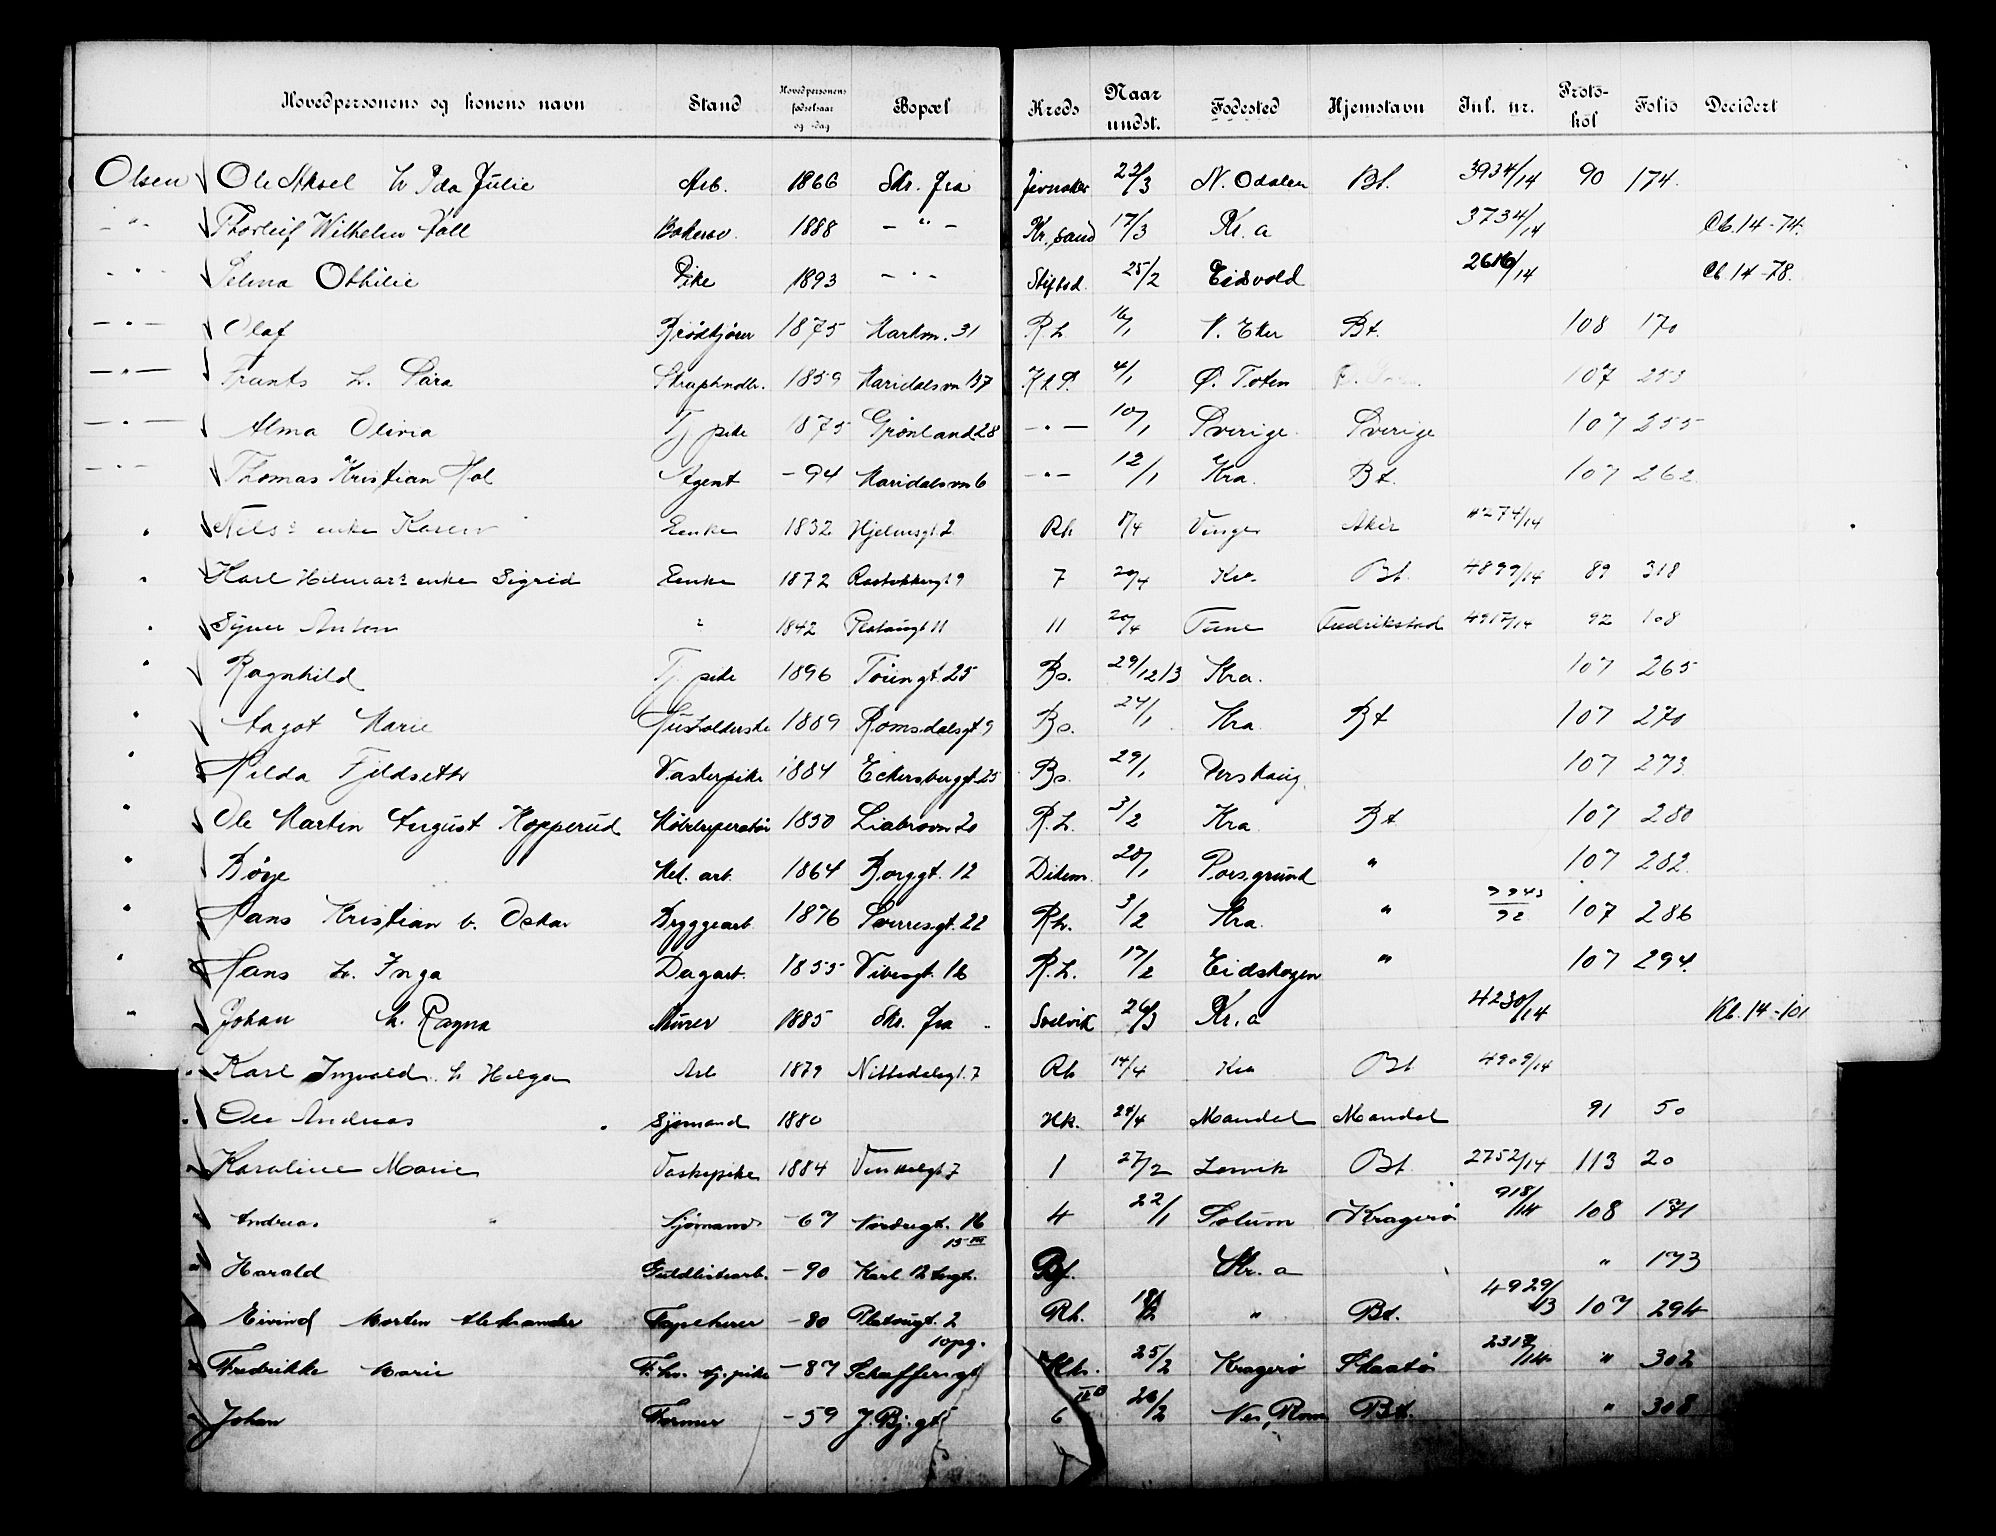 Hovedpersonens og konens navn Stand Hovedpersonens fødselsaar og -dag Bopæl Kreds Naar undst. Fødested Hjemstavn Inl. nr. Proto-kol Folio Decidert
Olsen Ole Aksel h Ida Julie Arb. 1866 Skr. fra Jevnaker 22/3 N. Odalen Bt. 3934/14 90 174.
- " - Thorleif Wilhelm Kr. sand 1888 - " - 17/3 Kr. a 3734/14 Cb. 14-74.
- " - Selma Othilie Pike 1893 - " - 25/2 Eidsvold 2616/14 Cb. 14-78.
- " - Olaf Brødkjører 1875 Markvn. 31 R.h. 16/1 N. Eker Bt. 108 170
- " - Frants h. Sara Skraphndlr. 1859 Maridalsvn 137 4/1 Ø. Toten 107 253
- " - Alma Olivia Tj. pike 1875 Grønland 28 - " - 10/1 Sverige Sverige 107 255
- " - Thomas Kristian Agent -94 Maridalsvn 6 - " - 12/1 Kra. Bt. 107 262
" Nels's enke Karen Enke 1832 Hjelmsgt. 2 Rh 8/4 Vinger Aker 4274/14
" Karl Hilmar's enke Sigrid Enke 1872 7 20/4 Kra. Bt. 4899/14 89 318
" Syver Anton " 1842 Platougt 11 11 20/4 Tune Fredrikstad 4917/14 92 108
" Ragnhild Tj. pike 1896 Tøiengt. 25 Bs. 29/12 13 Kra. 107 265
" Aagot Marie Husholderske 1889 Romsdalsgt 9 Bs. 24/1 Kra. Bt 107 270
" Hilda Fjeldseth Vaskepike 1884 Eckersbergt. 25 Bs. 29/1 107 273
" Ole Martin August Kopperud 1850 Liabrovn 20 R.h. 3/2 Kra. Bt 107 280
" Børje Mel. arb. 1864 Borggt. 12 Dikem. 28/1 Porsgrund " 107 282
" Hans Kristian v. Oskar Bryggearb. 1876 Sverresgt. 22 Rh. 3/2 Kra. " 107 286
" Hans h. Inga Dagarb. 1855 Vibesgt. 16 R.h. 17/2 Eidskogen " 107 294.
" Johan h. Ragna Murer 1885 Skr. fra Svelvik 26/3 Kr. a 4230/14 Kb. 14-101
" Karl Ingvald h Helga Arb 1879 Nittedalsgt. 7 Rh 14/4 Kra Bt 4909/14
" Ole Andreas Sjømand 1880 Hk. 24/4 Mandal Mandal 91 50
" Karoline Marie Vaskepike 1884 Vinkelgt 7 1 27/2 Larvik Bt 2752/14 113 20
" Andreas Sjømand -67 Nordregt. 16 4 22/1 Solum Kragerø 918/14 108 171
" Harald Guldlistearb. -90 Karl 12 tesgt. 15 III Bf. Kr. a " 173
" Eivind Morten Aleksander Tapetserer -80 Platougt. 2 Rh. 18/2 " Bt. 4929/13 107 294
" Fredrikke Marie F. hv. tj. pike -87 Schæffersgt 10 pg. Hk. 25/2 Kragerø Skaatø 2318/14 " 302
" Johan Former -59 J. Bj. gt 6 II B 26/2 Nes, Rom. Bt. " 308